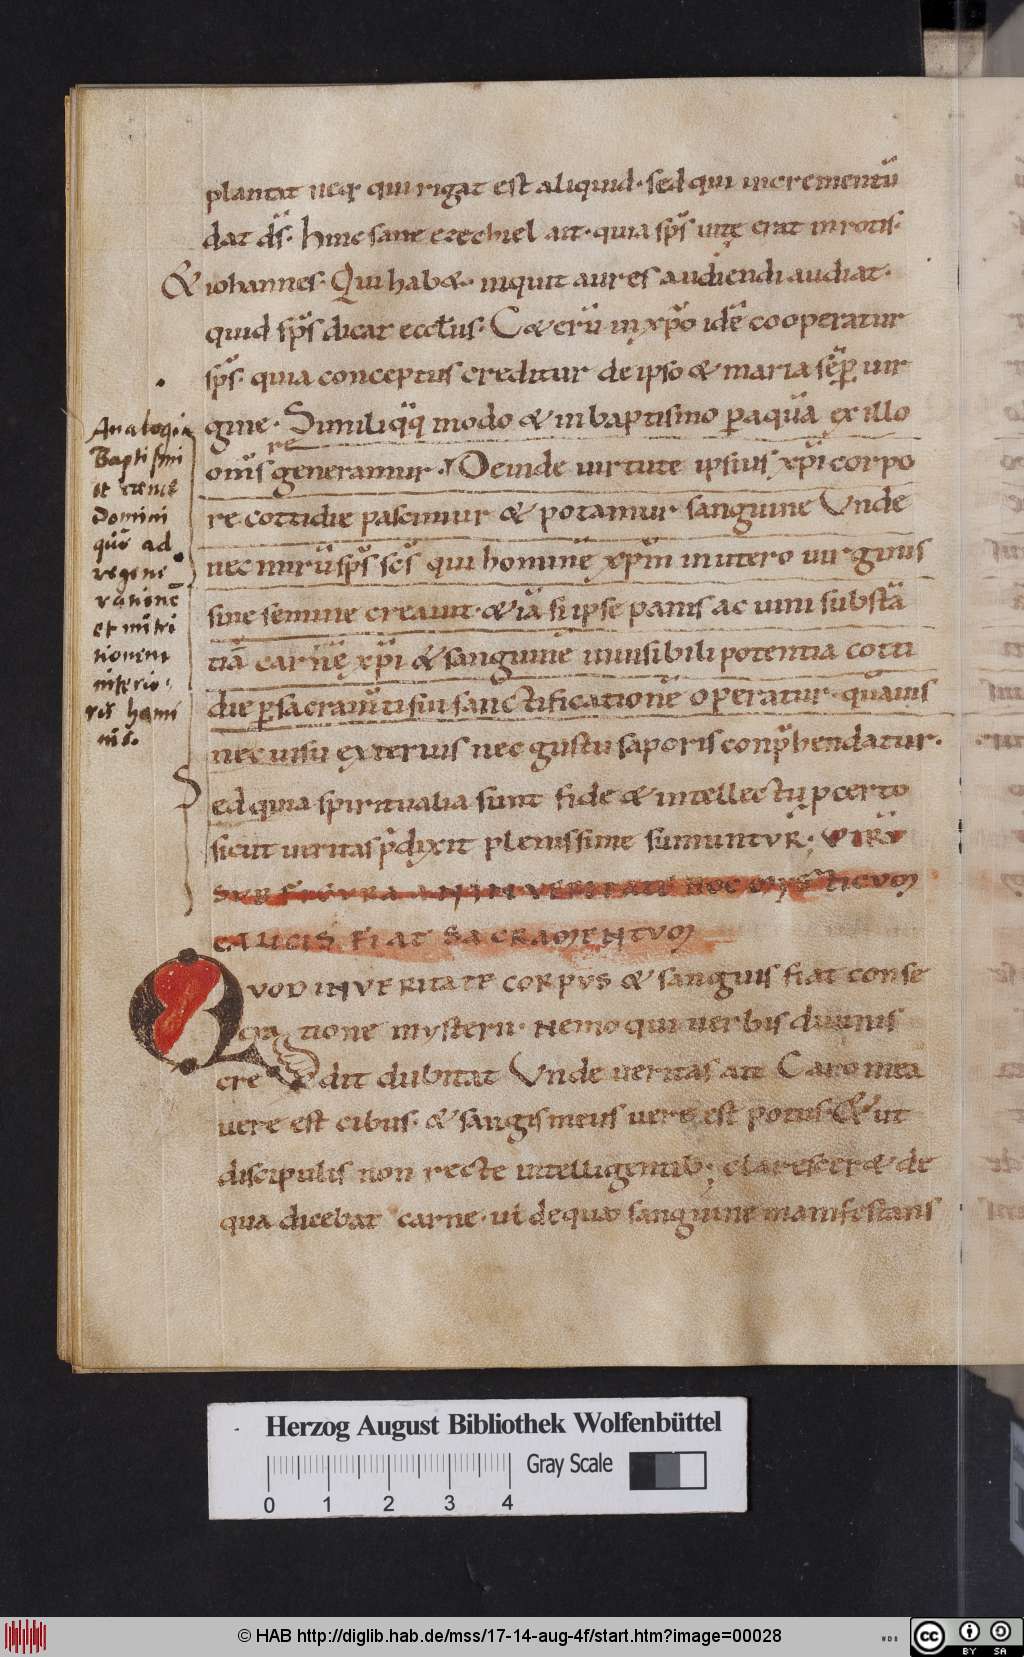 plantat neq; qui rigat est aliquid· sed qui incrementū
dat ds̄· hinc sane ezechiel ait· quia sps̄ uitę erat in rotis·
& iohannes· Qui hab&· inquit aures audiendi audiat·
quid sps̄ dicat eccl̄iis· C&erū in xp̄o idē cooperatur
sps̄· quia conceptus creditur de ipso & maria sēp uir
gine· Simili q̄q; modo & in baptismo p aquā ex illo
om̄s regeneramur· Deinde uirtute ipsius xp̄i corpo
re cottidie pascimur & potamur sanguine Unde
nec mirū sps̄ sc̄s qui hominē xp̄m in utero uirginis
sine semine creauit· & iā si ipse panis ac uini substā
tiā carnē xp̄i & sanguinē inuisibili potentia cotti
die p sacram̄ti sui sanctificationē operatur· quāuis
nec uisu exterius nec gustu saporis conp̄hendatur·
Sed quia spiritualia sunt fide & intellectu p certo
sicut ueritas p̄dixit plenissime sumuntur· UTRŪ
SUB FIGURA AN IN VERITATE HOC MYSTICUM
CALICIS FIAT SACRAMENTUM
QUOD IN VERITATE CORPUS & sanguis fiat conse
cratione mysterii· Nemo qui uerbis diuinis
credit dubitat Unde ueritas ait Caro mea
uere est cibus· & sangis meus uere est potus· & ut
discipulis non recte intelligentib; claresceret & de
qua dicebat carne· ul de quo sanguine manifestans
Analogia
Baptismi
et cęnę
Domini
quō ad
regene
rationē
et nutri
tionem
interio
ris homi
nis.
Herzog August Bibliothek Wolfenbüttel
0 1 2 3 4 Gray Scale
© HAB http://diglib.hab.de/mss/17-14-aug-4f/start.htm?image=00028
WDB
cc BY SA